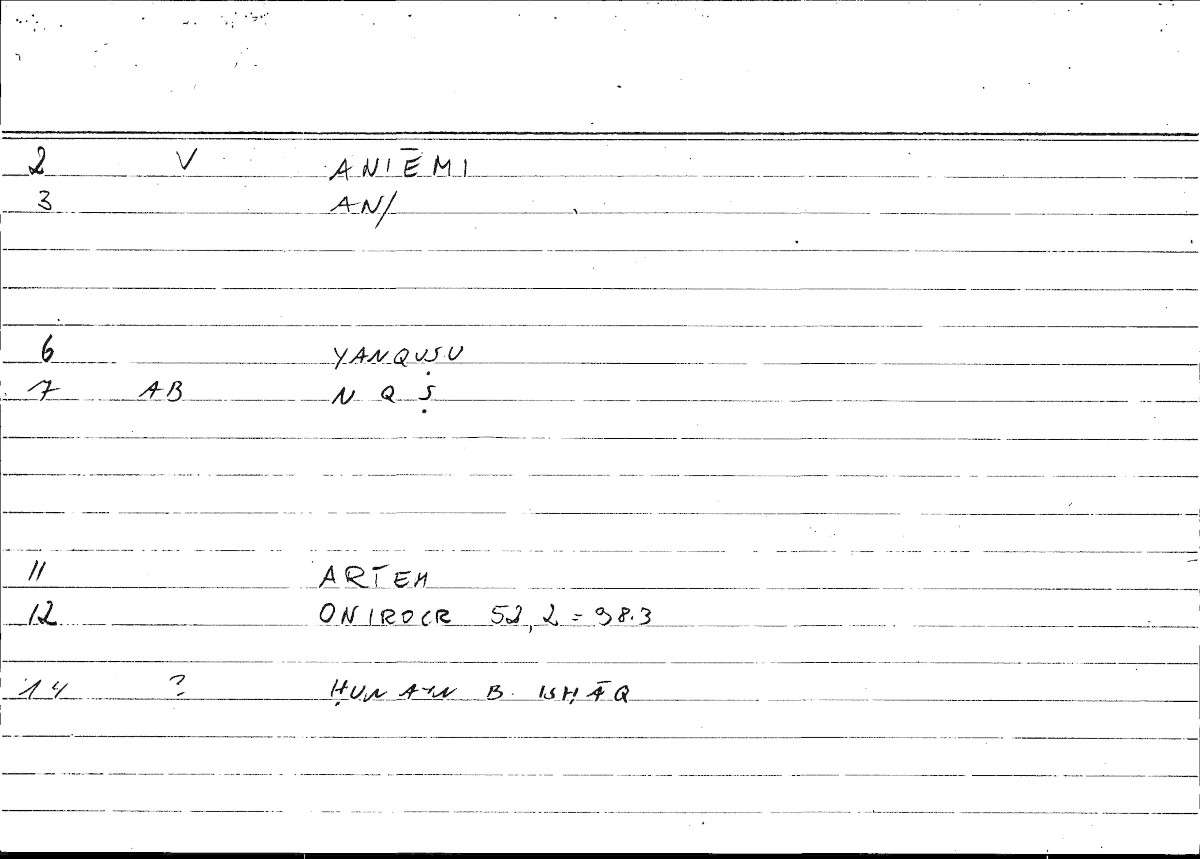 2 V ANIĒMI
3 AN/
6 YANQUṢU
7 AB N Q Ṣ
11 ARTEM
12 ONIROCR 52,2 = 98.3
14 ? ḤUNAYN B. ISḤĀQ